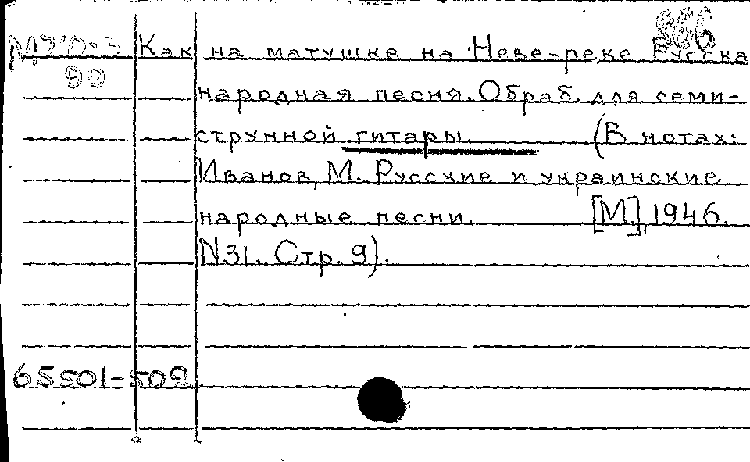 866
Как на матушке на Неве-реке Русска
90
народная песня. Обраб. для семи-
струнной гитары. (В нотах:
Иванов, М. Русские и украинские
народные песни. [М], 1946.
N31. Стр. 9).
65501-509